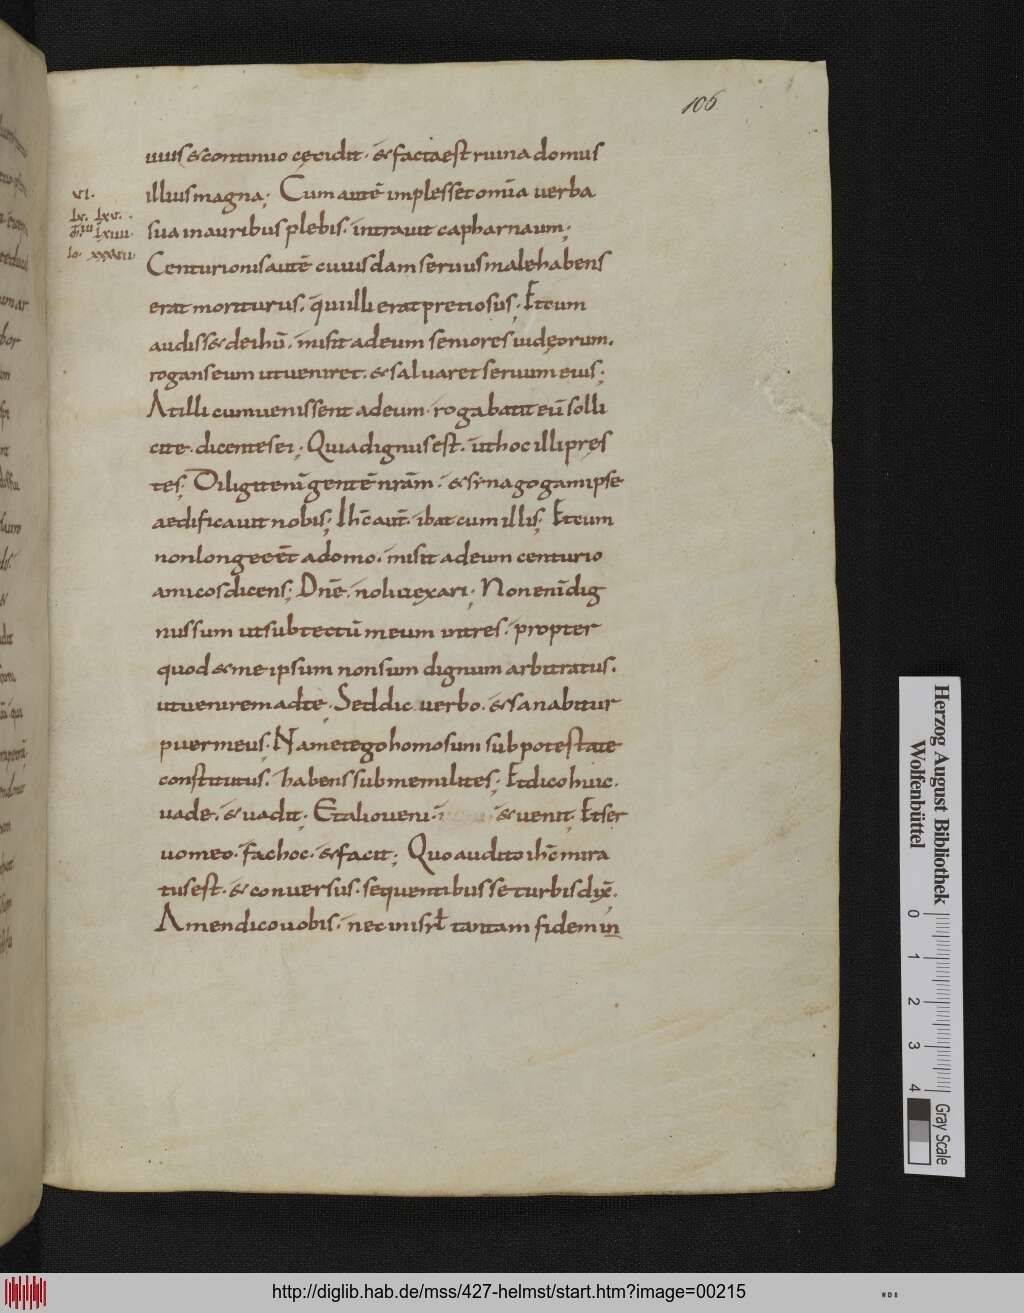 106
uuis & continuo cęcidit· & facta est ruina domus
illius magna; Cum autē implesset om̄ia uerba
sua in auribus plebis· intrauit capharnaum;
vi.
lx. lxv.
lxiiii
Centurionis autē cuiusdam seruus male habens
erat moriturus· q̄ui illi erat pretiosus; Et cum
audiss& de ihū· misit ad eum seniores iudęorum·
rogans eum ut ueniret· & saluaret seruum eius;
At illi cum uenissent ad eum· rogabant eū solli
cite· dicentes ei; Quia dignus est· ut hoc illi pręs
tes; Diligit enī gentē nr̄am· & synagogam ipse
aedificauit nobis; Ihc̄ aut̄· ibat cum illis; Et cum
non longe eēt a domo· misit ad eum centurio
amicos dicens; Dn̄e· noli uexari; Non enī dig
nus sum ut sub tectū meum intres· propter
quod & me ipsum non sum dignum arbitratus·
ut uenirem ad te; Sed dic uerbo· & sanabitur
puer meus; Nam et ego homo sum sub potestate
constitutus· habens sub me milites; Et dico huic·
uade· & uadit; Et alio ueni· & uenit; Et ser
uo meo· fac hoc· & facit; Quo audito ihc̄ mira
tus est· & conuersus· sequentibus se turbis dix̄·
Amen dico uobis· nec in isrł tantam fidem in
Herzog August Bibliothek
Wolfenbüttel
0 1 2 3 4
Gray Scale
http://diglib.hab.de/mss/427-helmst/start.htm?image=00215